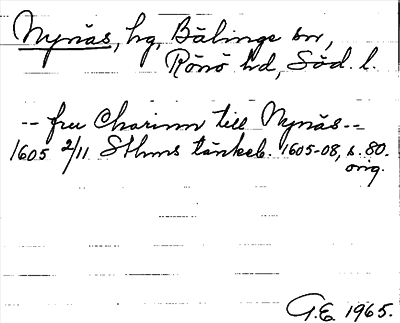 Nynäs, hg, Bälinge sn,
Rönö hd, Söd. l.
-- fru Charinn till Nynäs--
1605 2/11 Sthms tänkeb. 1605-08, s. 80.
orig.
G.E. 1965.